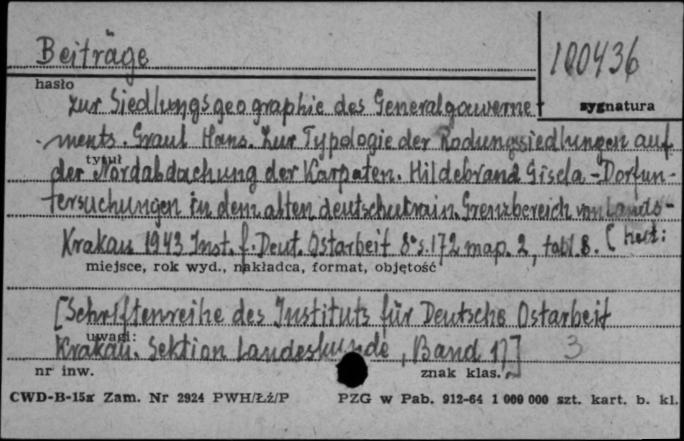 Beiträge
100436
hasło
sygnatura
zur Siedlungsgeographie des Generalgouverne-
ments. Graul Hans. Zur Typologie der Rodungssiedlungen auf
tytuł
der Nordabdachung der Karpaten. Hildebrand Gisela - Dorfun-
tersuchungen in dem alten deutschukrain. Grenzbereich von Lands-
hut:
Krakau 1943 Inst. f. Deut. Ostarbeit 8° s. 172 map. 2, tabl. 8.
miejsce, rok wyd., nakładca, format, objętość
[Schriftenreihe des Instituts für Deutsche Ostarbeit
uwagi:
Krakau. Sektion Landeskunde, Band 1)] 3
nr inw.
znak klas.
CWD-B-15a Zam. Nr 2924 PWH/Łź/P
PZG w Pab. 912-64 1 000 000 szt. kart. b. kl.